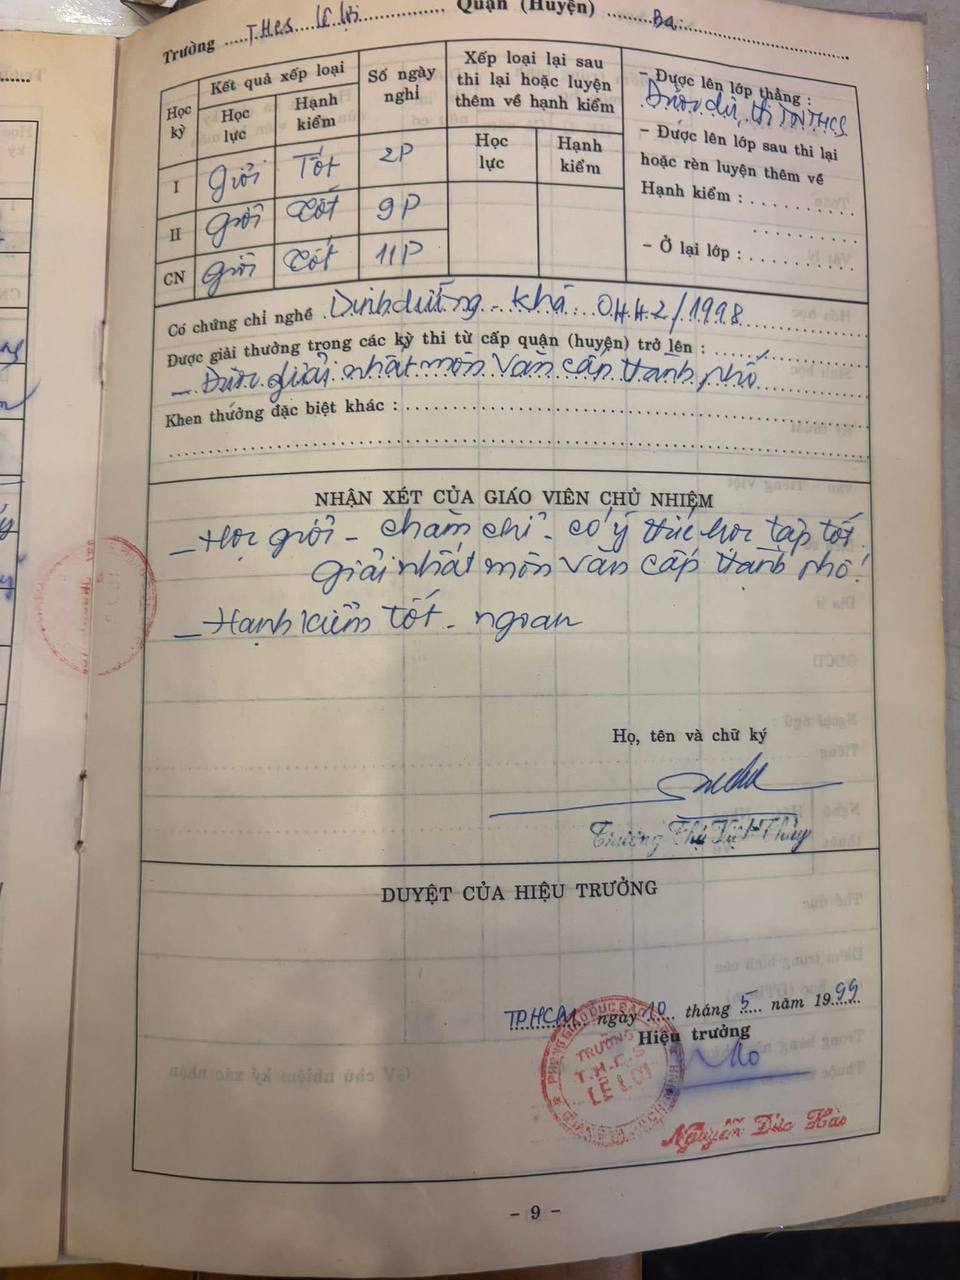 Trường ....T.H.c.s Lê Lợi.... Quận (Huyện) ....Ba....
Học kỳ
Kết quả xếp loại
Số ngày nghỉ
Xếp loại lại sau thi lại hoặc luyện thêm về hạnh kiểm
Học lực
Hạnh kiểm
Học lực
Hạnh kiểm
I giỏi Tốt 2P
II giỏi tốt 9P
CN giỏi tốt 11P
– Được lên lớp thẳng :
Được dự thi TNTHCS
– Được lên lớp sau thi lại
hoặc rèn luyện thêm về
Hạnh kiểm :
– Ở lại lớp :
Có chứng chỉ nghề . Dinh dưỡng - khá 04.4.2/1998
Được giải thưởng trong các kỳ thi từ cấp quận (huyện) trở lên :
– Được giải nhất môn Văn cấp thành phố
Khen thưởng đặc biệt khác :
NHẬN XÉT CỦA GIÁO VIÊN CHỦ NHIỆM
– Học giỏi - chăm chỉ - có ý thức học tập tốt.
giải nhất môn Văn cấp thành phố.
– Hạnh kiểm tốt - ngoan
Họ, tên và chữ ký
Trương Thị Việt Thủy
DUYỆT CỦA HIỆU TRƯỞNG
TP.HCM ngày 10 tháng 5 năm 1999
Hiệu trưởng
TRƯỜNG
T.H.C.S
LÊ LỢI
Nguyễn Đức Hào
– 9 –